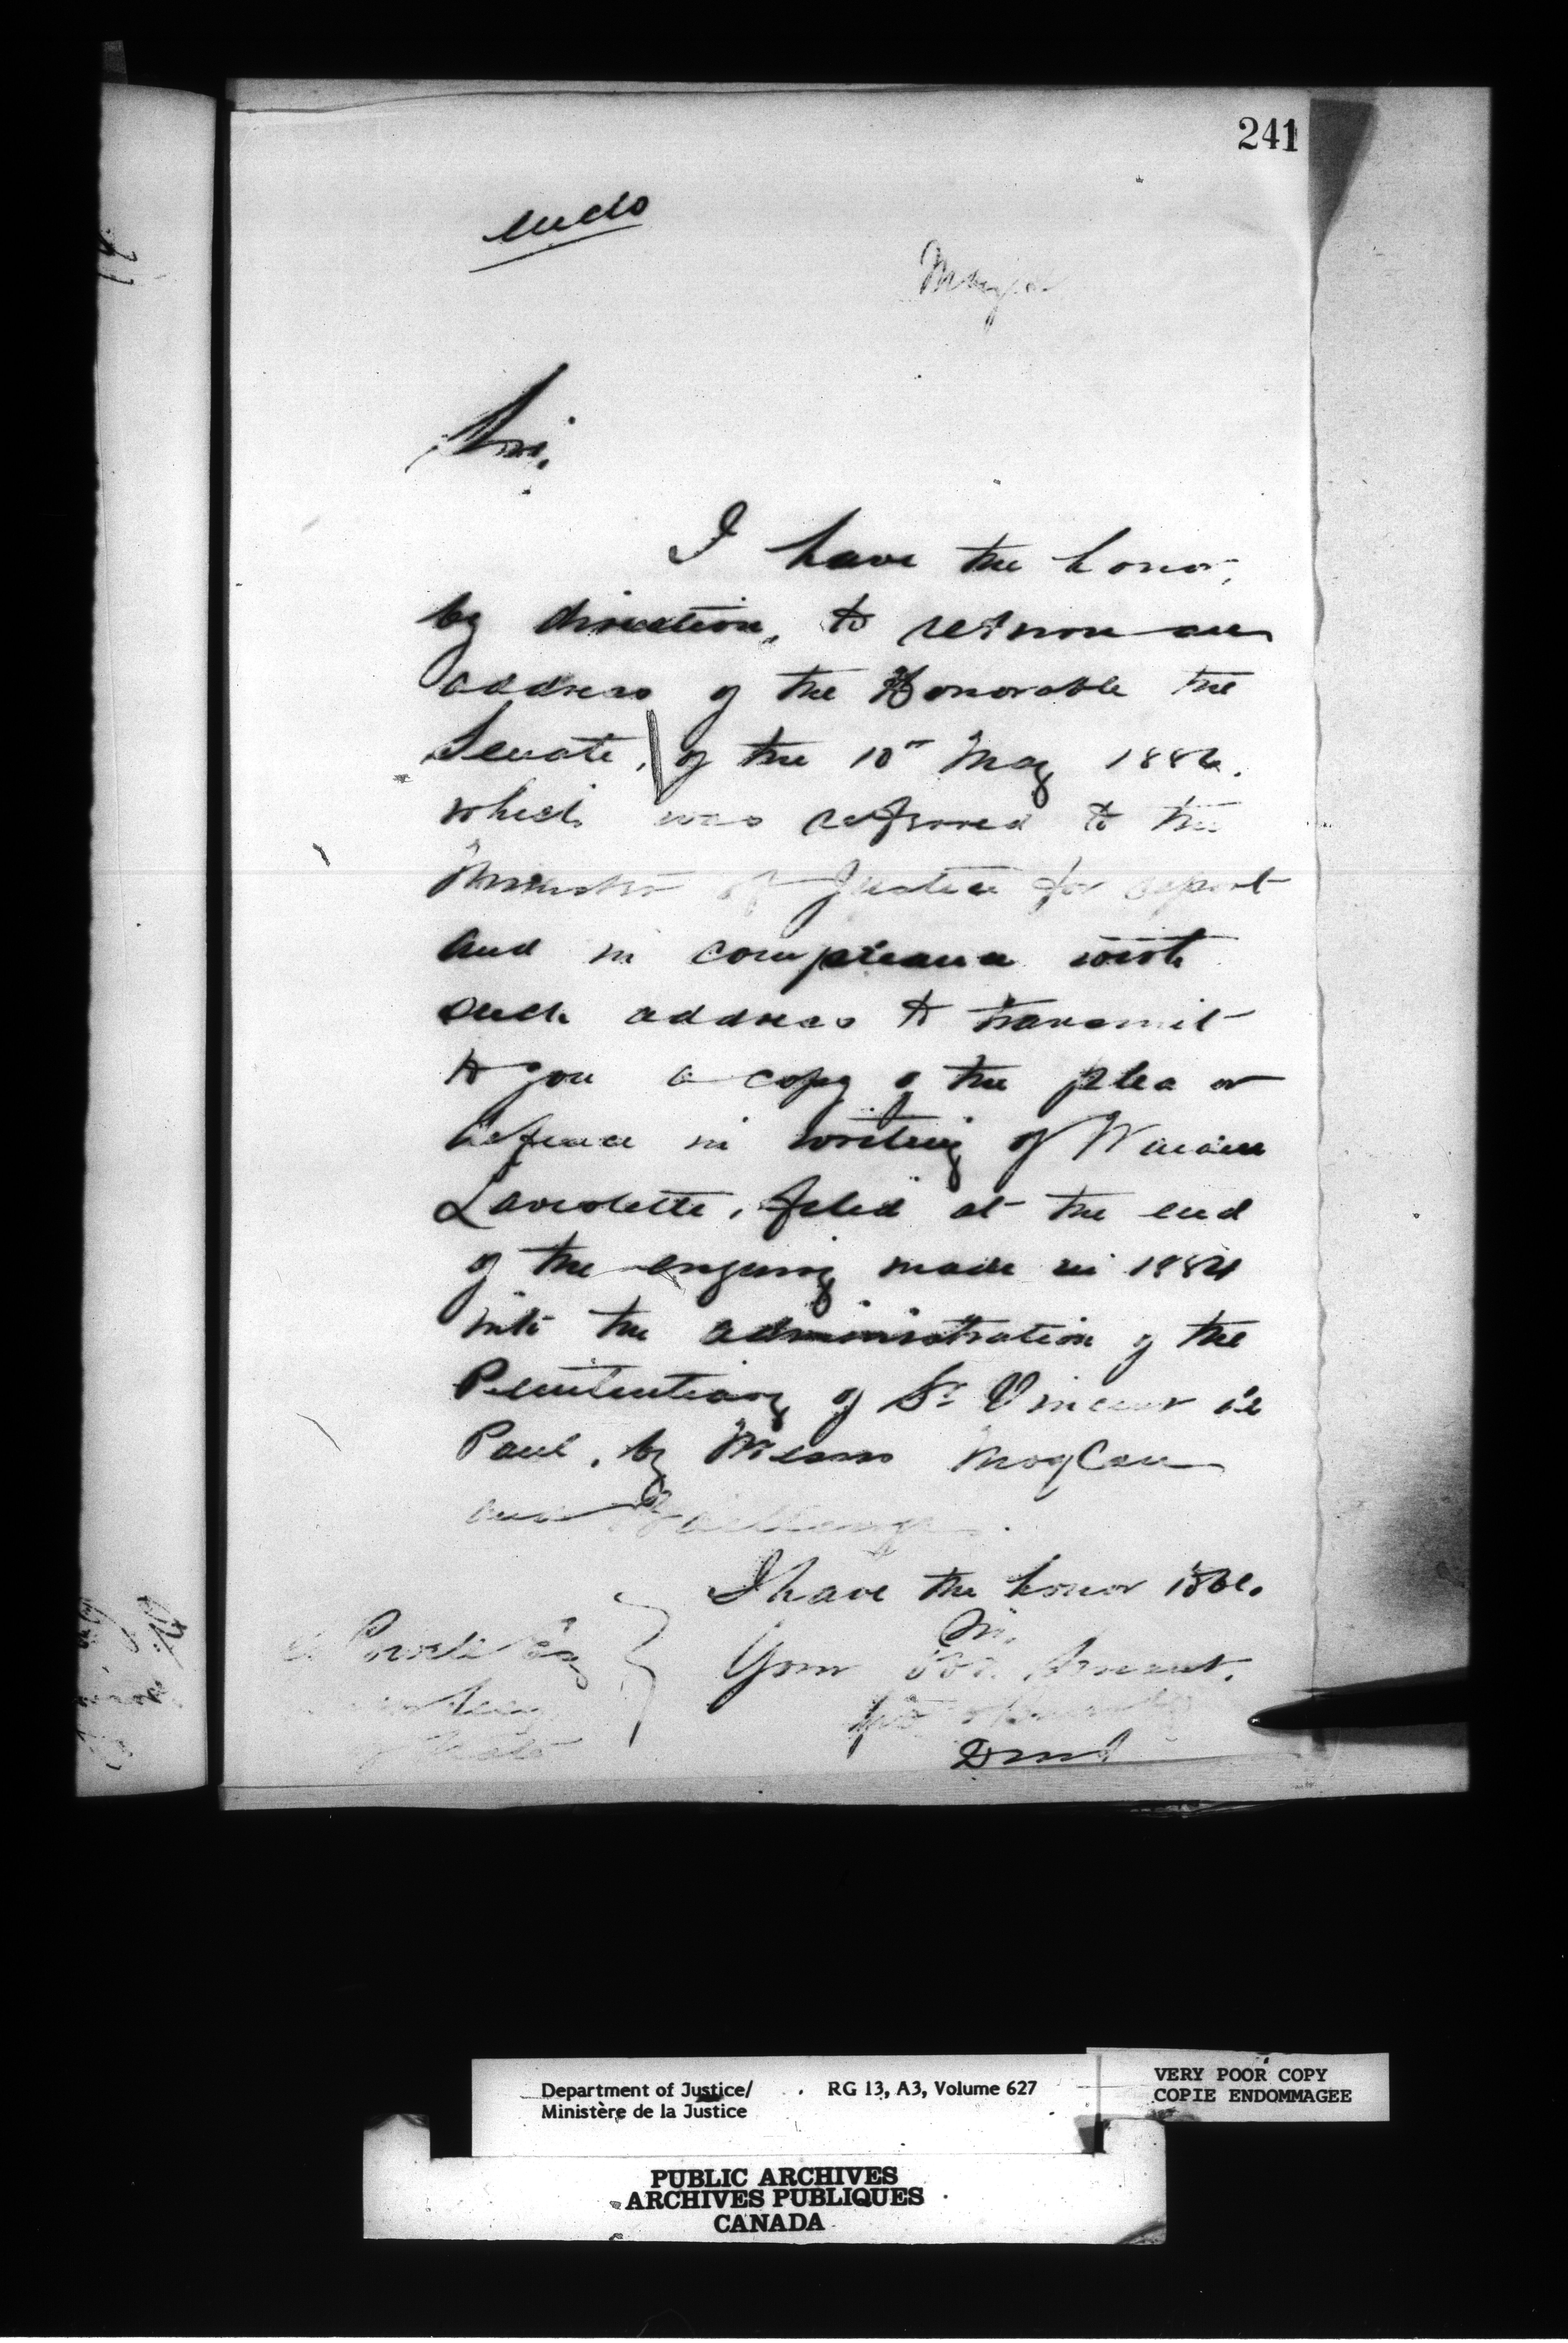 241
encls
May
Sir,
I have the honor,
by direction, to return an
address of the Honorable the
Senate, of the 10th May 1886.
which was referred to the
Minister of Justice for report
and in compliance with
such address to transmit
to you a copy of the plea or
defence in writing of
Laviolette, filed at the end
of the enquiry made in 1884
into the administration of the
Penitentiary of St Vincent de
Paul, by Messrs Moylan
and Baillairgé.
I have the honor to be.
Sir,
Your obt. Servant.
Powell Esq
Under Secy
of State
DMJ
Department of Justice/
Ministère de la Justice
RG 13, A3, Volume 627
VERY POOR COPY
COPIE ENDOMMAGEE
PUBLIC ARCHIVES
ARCHIVES PUBLIQUES
CANADA